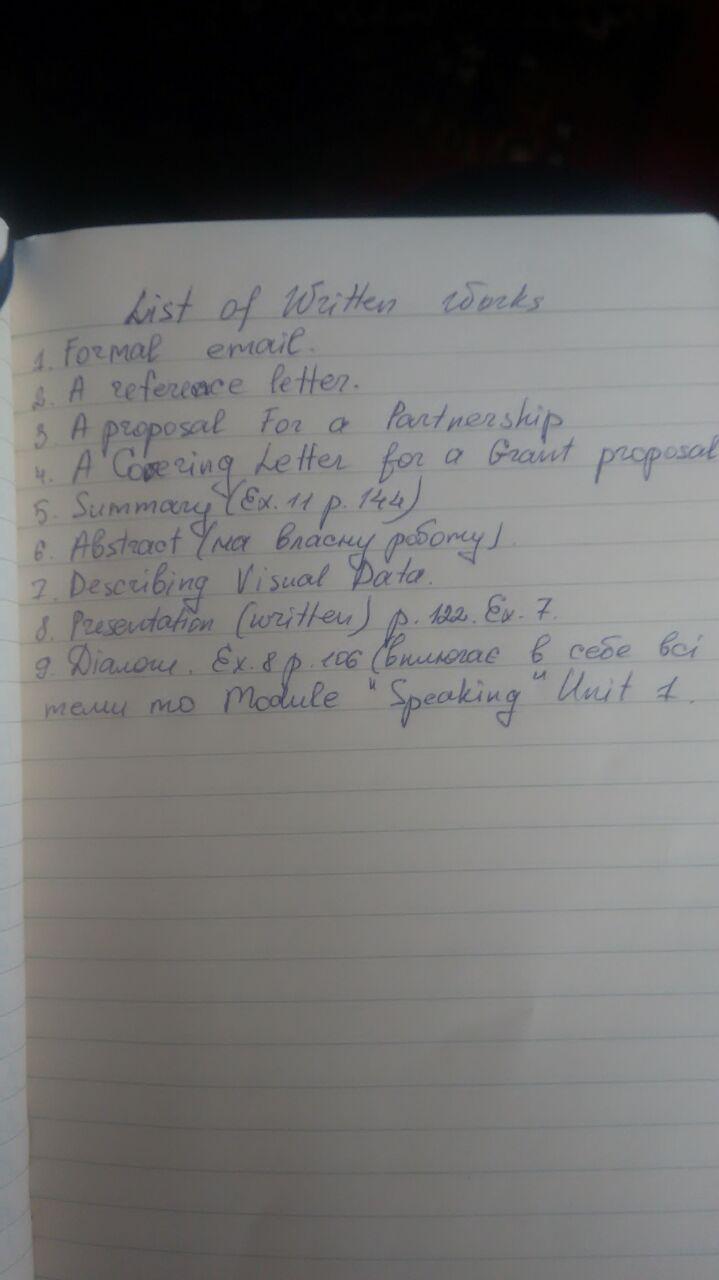 List of Written Works
1. Formal email.
2. A reference letter.
3 A proposal For a Partnership
4. A Covering Letter for a Grant proposal
5. Summary (Ex. 11 p. 144)
6. Abstract (на власну роботу).
7. Describing Visual Data.
8. Presentation (written) p. 122. Ex. 7.
9. Діалог. Ex. 8 p. 106 (включає в себе всі
теми по Module "Speaking" Unit 1.